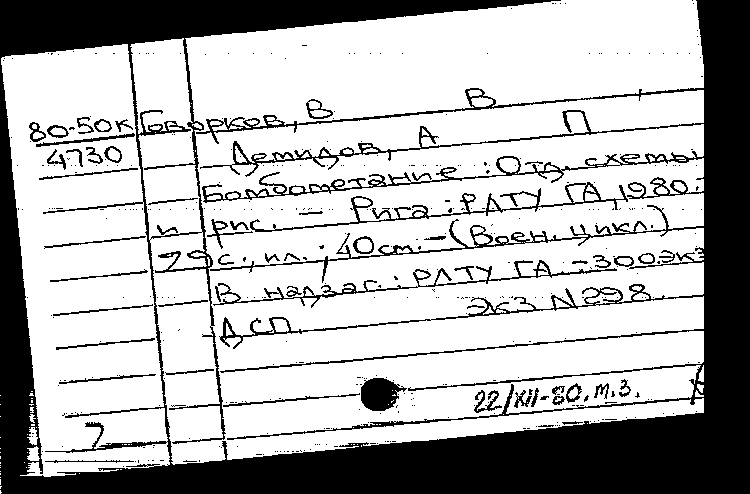 80-50к Говорков, В В
4730 Демидов, А П
Бомбометание : Отд. схемы
и рис. — Рига : РЛТУ ГА, 1980.-
79 с., ил. ; 40 см. - (Воен. цикл.)
В надзаг. : РЛТУ ГА. - 300 экз
ДСП. экз N 298.
22/XII-80. т.з.
7